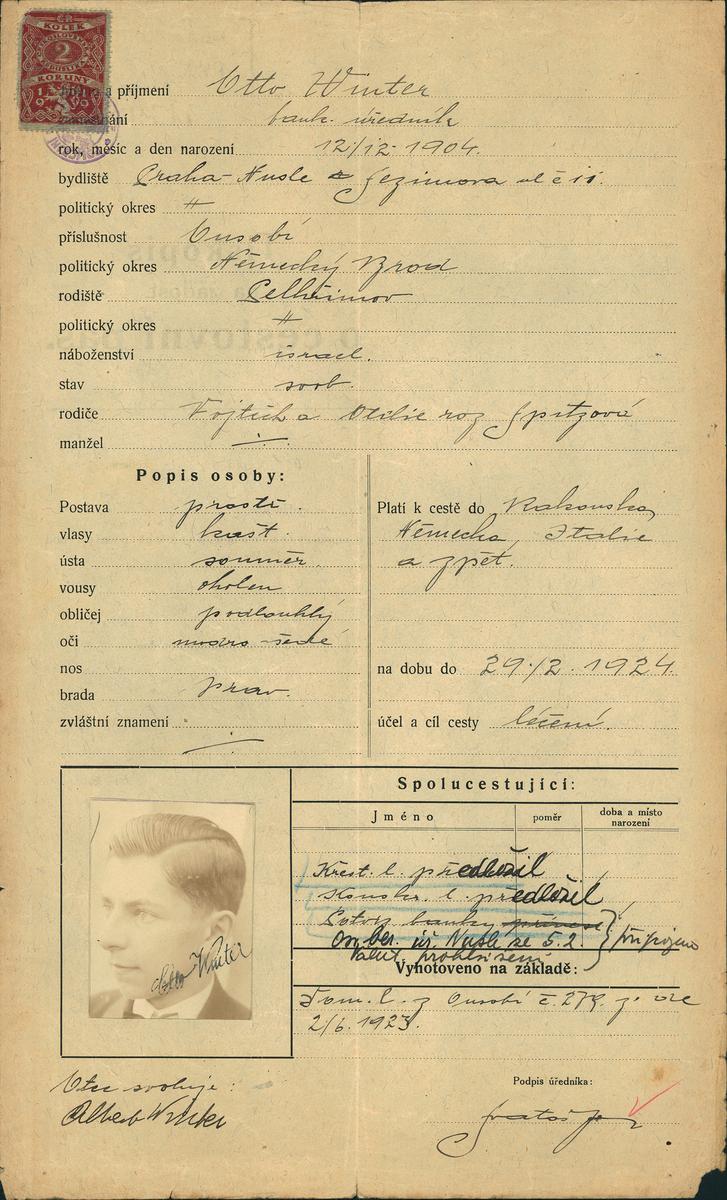 KOLEK
2
KORUNY
1919
a příjmení Otto Winter
bank. úředník
rok, měsíc a den narození 12/12 1904.
bydliště Praha-Nusle Jezimova ul č 11.
politický okres "
příslušnost Úsobí
politický okres Německý Brod
rodiště Pelhřimov
politický okres "
náboženství israel.
stav svob.
rodiče Vojtěch a Otilie roz Spitzová
manžel ./.
Popis osoby:
Postava prostř.
vlasy kašt.
ústa souměr.
vousy oholen
obličej podlouhlý
oči modro-šedé
nos
brada prav.
zvláštní znamení
Platí k cestě do Rakouska,
Německa, Italie
a zpět.
na dobu do 29/2. 1924
účel a cíl cesty léčení.
Spolucestující:
Jméno poměr doba a místo narození
Křest. l. předložil
předložil
banky
ús. Nusle ze 5.2. připojeno
prohlášení
Vyhotoveno na základě:
Dom. l. z Ousobí č. 279. ze dne
2/6. 1923.
Otto Winter
Otec svoluje:
Albert Winter
Podpis úředníka: